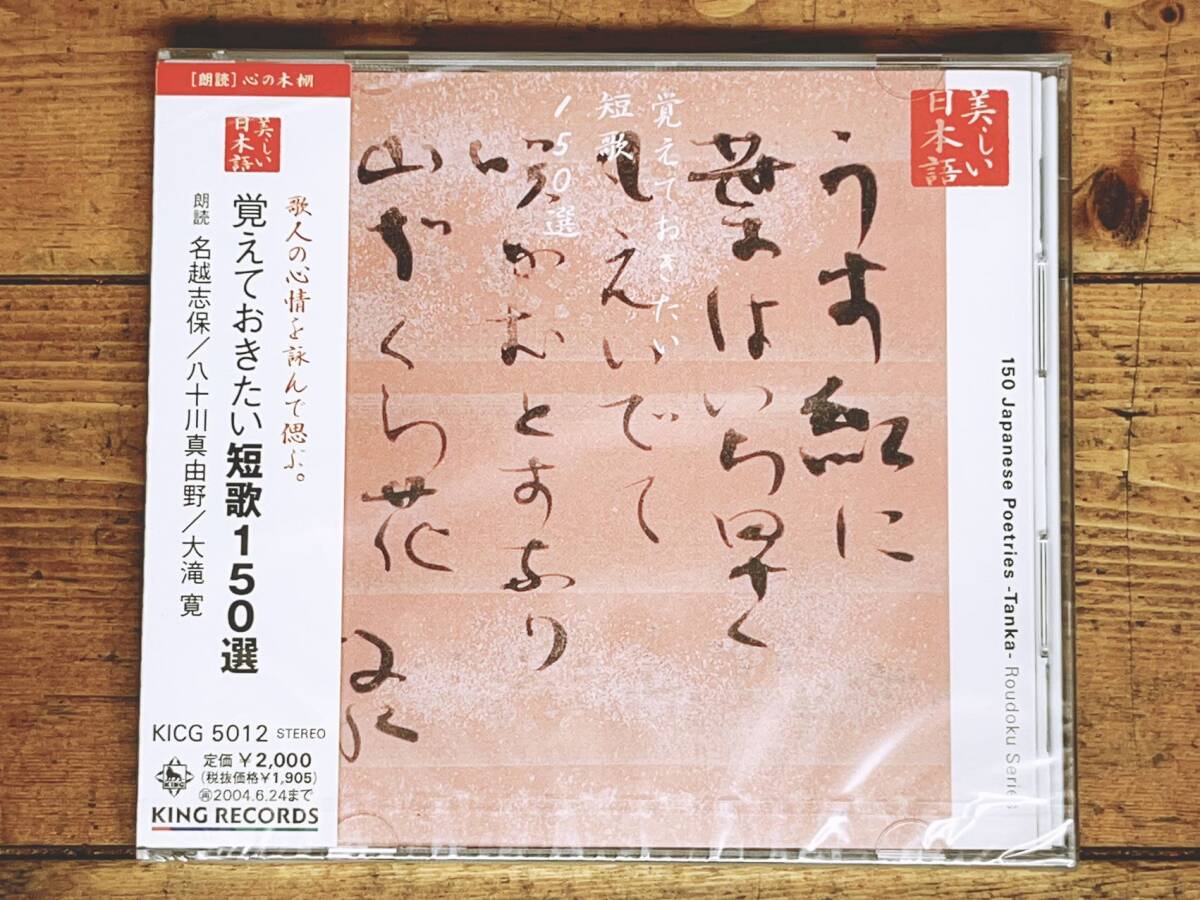 ［朗読］心の本棚
美しい
日本語
歌人の心情を詠んで偲ぶ。
覚えておきたい短歌150選
朗読 名越志保／八十川真由野／大滝 寛
KICG 5012 STEREO
定価 ¥2,000
(税抜価格¥1,905)
再2004.6.24まで
KING
KING RECORDS
美しい
日本語
覚えておきたい
短歌
150選
うす紅に
葉はいち早く
もえいでて
咲かむとすなり
山ざくら花
150 Japanese Poetries -Tanka- Roudoku Series